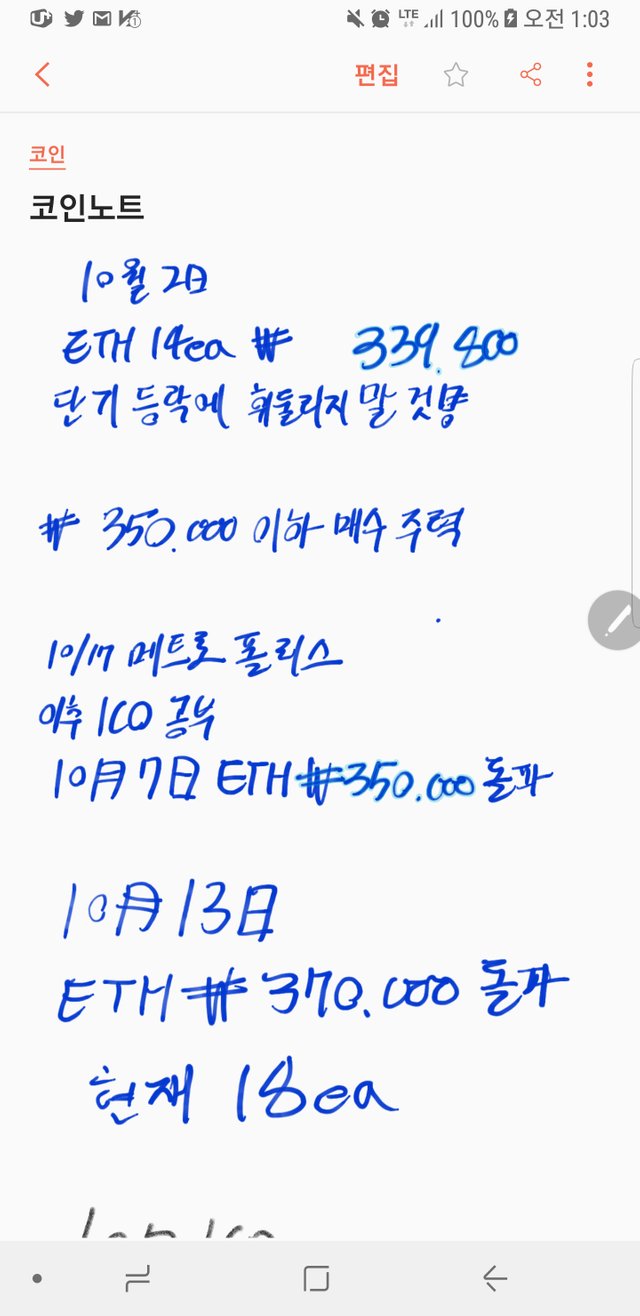 LTE 100% 오전 1:03
편집
코인
코인노트
10월 2日
ETH 14ea ₩ 339.800
단기 등락에 휘둘리지 말 것
₩ 350.000 이하 매수 주력
10/17 메트로폴리스
이후 ICO 공부
10月 7日 ETH ₩350.000 돌파
10月 13日
ETH ₩ 370.000 돌파
현재 18ea